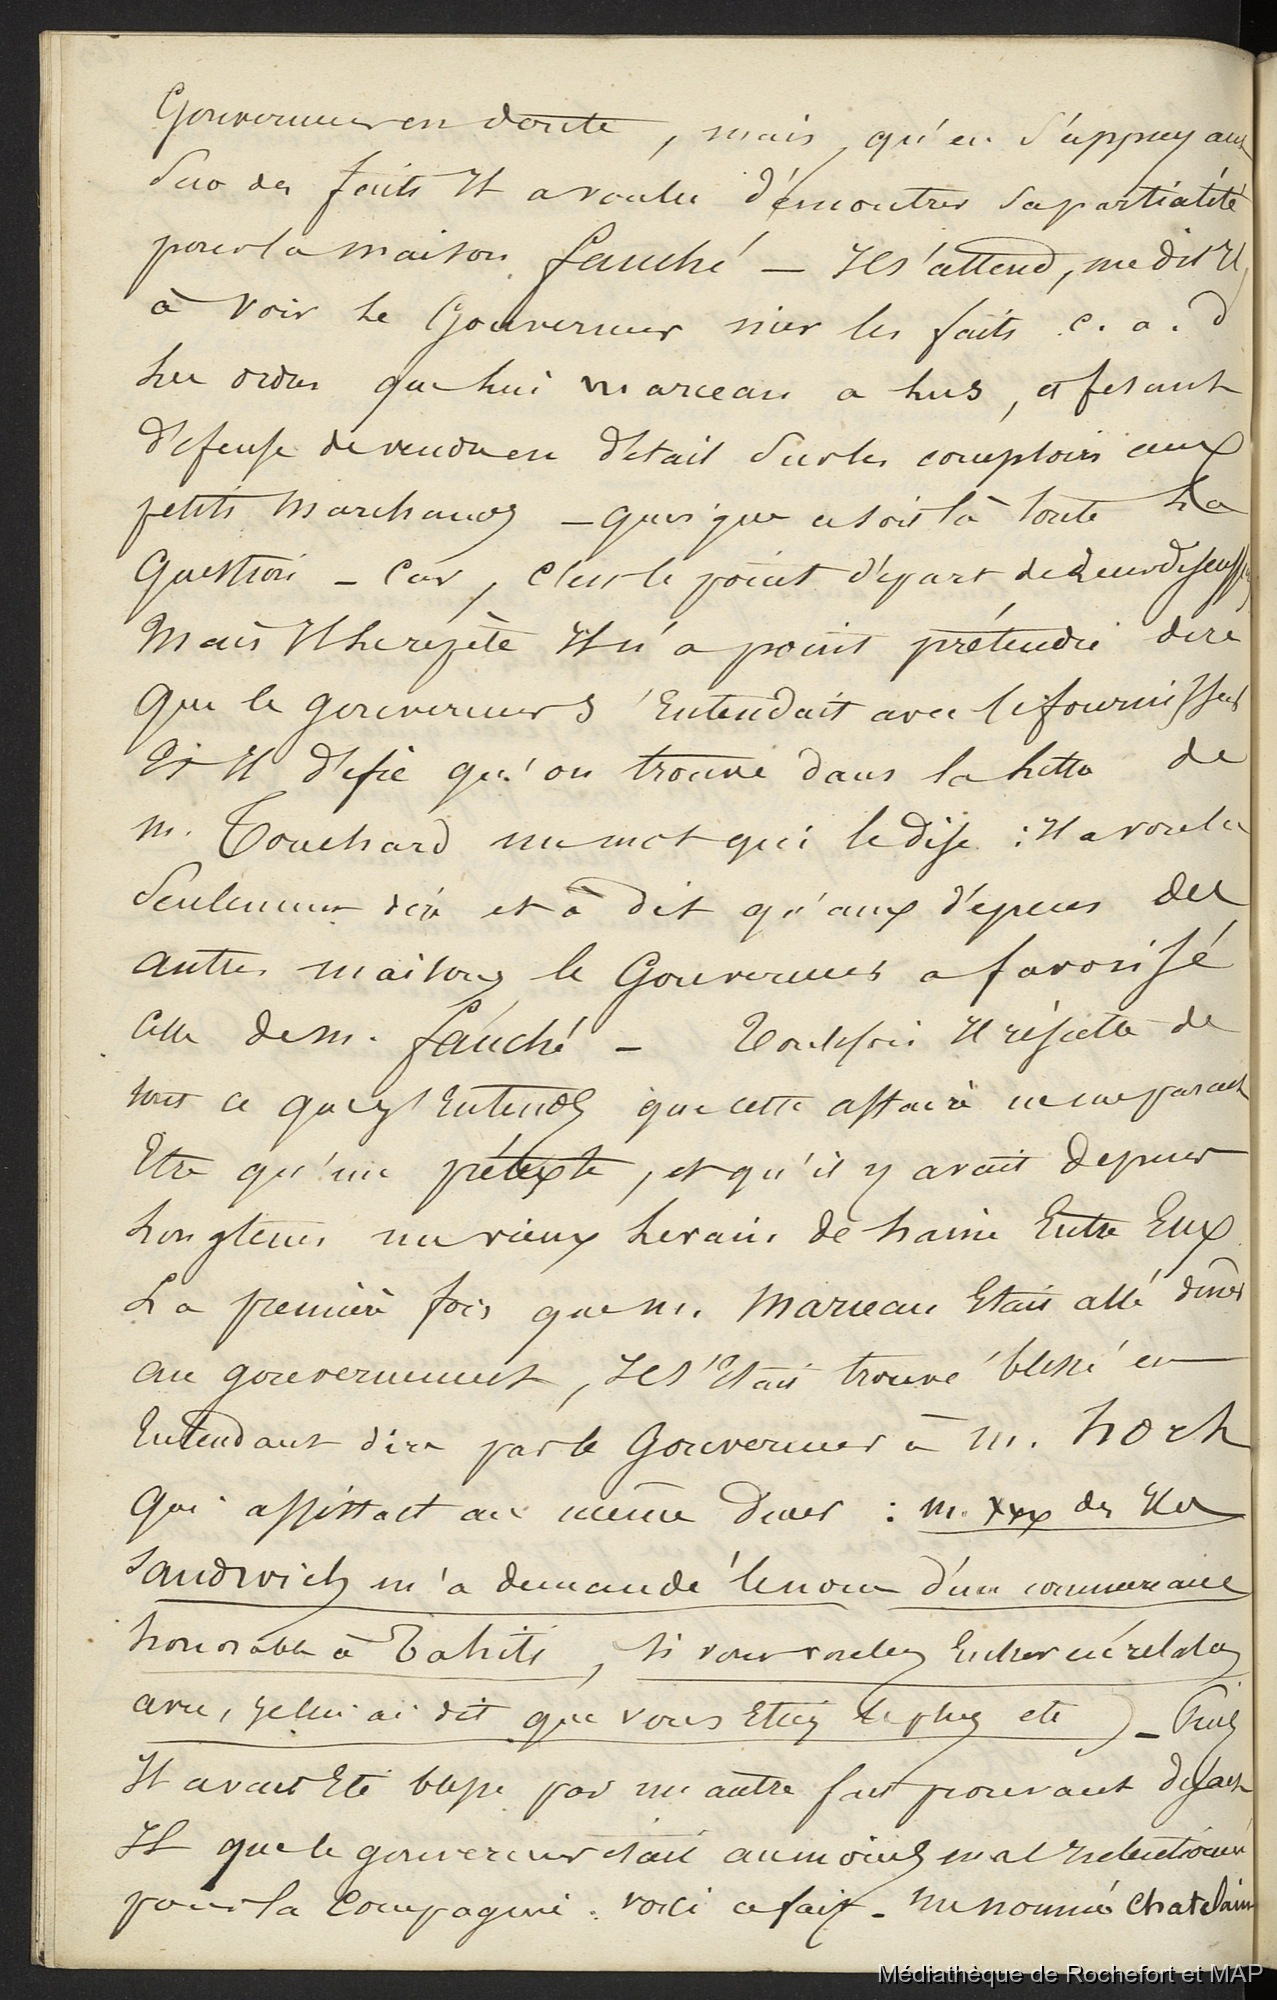 Gouverneur en doute, mais qu'en s'appuyant
sur des faits Il a voulu démontrer sa partialité
pour la maison fauché — Il s'attend, me dit Il,
à voir le Gouverneur nier les faits c. a. d
les ordres que lui marceau a lus, et fesant
défense de vendre en détail sur les comptoirs aux
petits Marchands — quoique ce soit là toute La
Question — Car, c'est le point départ de
Mais Il le repète Il n'a point prétendu dire
que le gouverneur s'Entendait avec le fournisseur
Et Il défie qu'on trouve dans la lettre de
m. Touchard un mot qui le dise : Il a voulu
seulement dire et à dit qu'aux dépens des
autres maisons le Gouverneur a favorisé
celle de m. fauché — Toutefois Il résulte de
tout ce que j'Entends que cette affaire ne me parait
Etre qu'un prétexte, et qu'il y avait depuis
Longtems un vieux levain de haine Entre Eux
La premiere fois que m. Marceau Etait allé diner
au gouvernement, Il s'Etait trouvé blessé en
Entendant dire par le Gouverneur à m. hort
qui assistait au même diner : m. xxx des Iles
Sandwich m'a demandé le nom d'un commercant
honorable à Tahiti, si vous voulez Entrer en relation
avec, je lui ai dit que vous Etiez le plus etc) — Puis
Il avait Eté blessé par un autre fait prouvant disait
Il que le gouverneur était au moins mal Intentionné
pour la Compagnie. voici ce fait — Un nommé Chatelain
Médiathèque de Rochefort et MAP